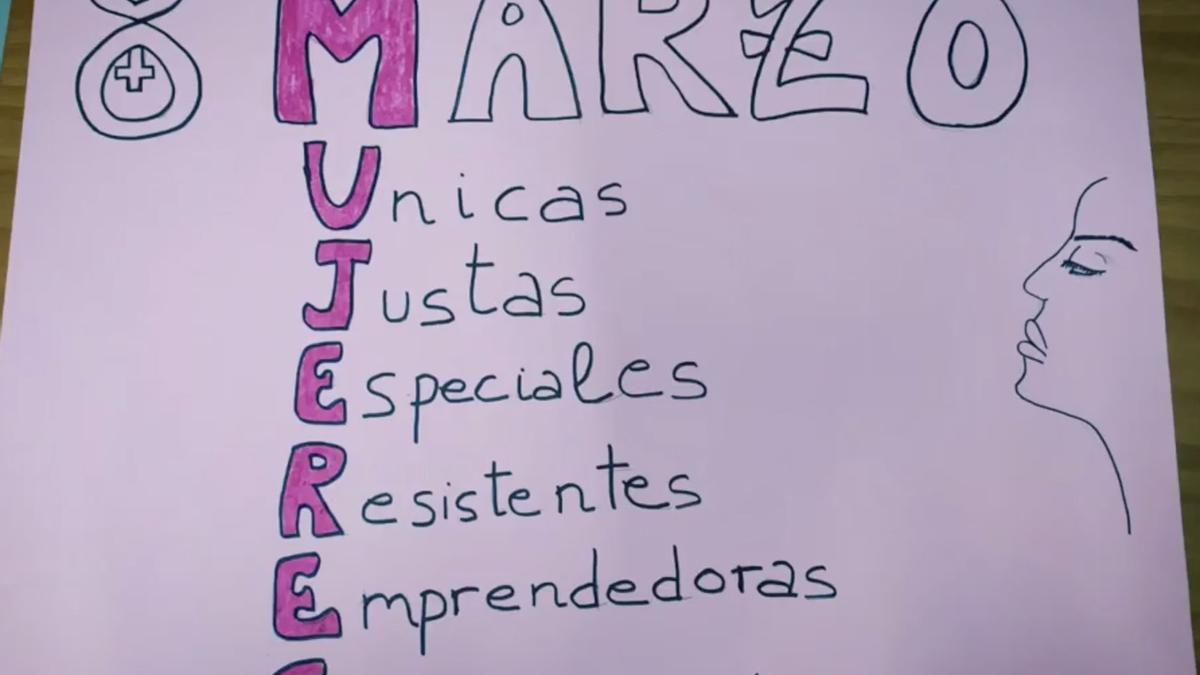 8 MARZO
Unicas
Justas
Especiales
Resistentes
Emprendedoras